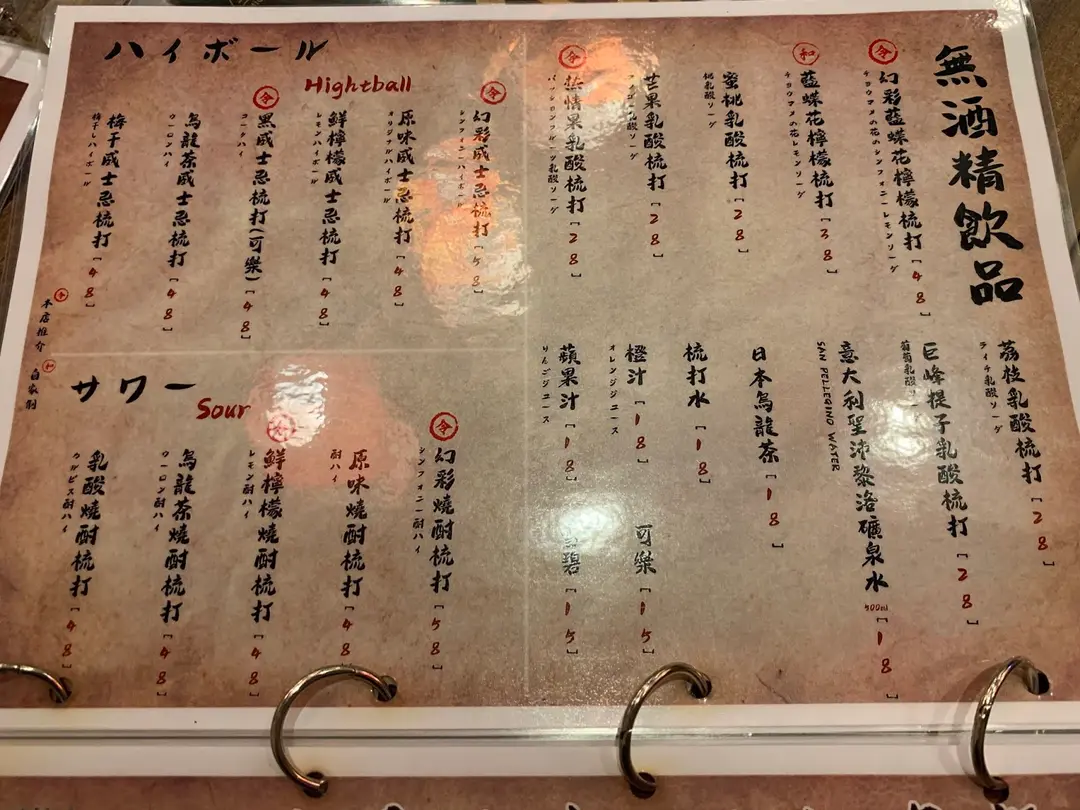 無酒精飲品
令
幻彩藍蝶花檸檬梳打 [38]
チョウマメの花のシンフォニーレモンソーダ
和
藍蝶花檸檬梳打 [38]
チョウマメの花レモンソーダ
蜜桃乳酸梳打 [28]
桃乳酸ソーダ
芒果乳酸梳打 [28]
マンゴー乳酸ソーダ
令
熱情果乳酸梳打 [28]
パッションフルーツ乳酸ソーダ
荔枝乳酸梳打 [28]
ライチ乳酸ソーダ
巨峰提子乳酸梳打 [28]
葡萄乳酸ソーダ
意大利聖沛黎洛礦泉水 500ml [18]
SAN PELLEGRINO WATER
日本烏龍茶 [18]
梳打水 [18]
橙汁 [18]
オレンジジュース
蘋果汁 [18]
りんごジュース
可樂 [15]
碧 [15]
ハイボール
Hightball
令
幻彩威士忌梳打 [58]
シンフォニーハイボール
原味威士忌梳打 [48]
オリジナルハイボール
鮮檸檬威士忌梳打 [48]
レモンハイボール
令
黑威士忌梳打(可樂) [48]
コークハイ
烏龍茶威士忌梳打 [48]
ウーロンハイ
梅干威士忌梳打 [48]
梅干しハイボール
令 本店推介
和 自家制
サワー
Sour
令
幻彩燒酎梳打 [58]
シンフォニー酎ハイ
原味燒酎梳打 [48]
酎ハイ
鮮檸檬燒酎梳打 [48]
レモン酎ハイ
烏龍茶燒酎梳打 [48]
ウーロン酎ハイ
乳酸燒酎梳打 [48]
カルピス酎ハイ